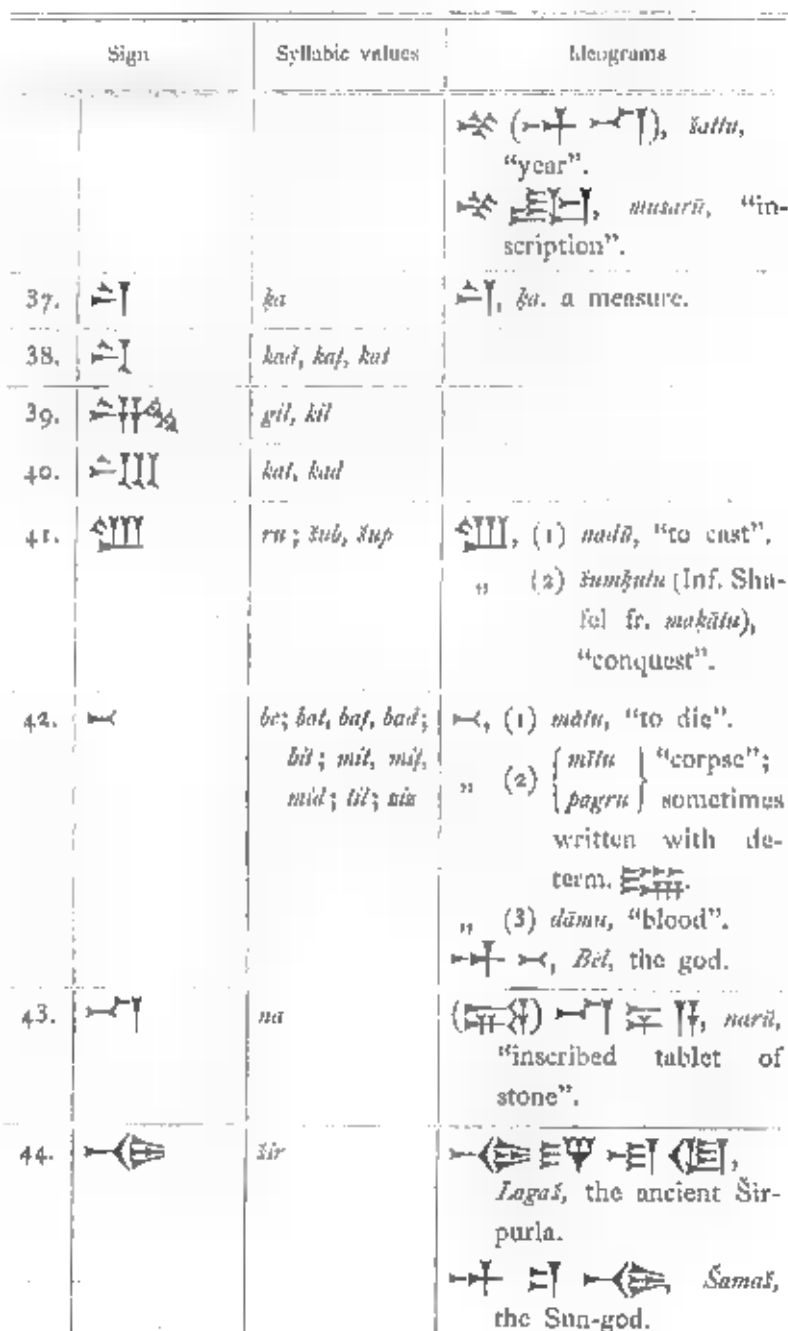 Sign Syllabic values Ideograms
𒈬 (𒀭 𒈾), šattu,
“year”.
𒈬 𒊬, musarū, “in-
scription”.
37. 𒋡 ḳa 𒋡, ḳa. a measure.
38. 𒆰 kad, kaṭ, kat
39. 𒄃 gil, kil
40. 𒆱 kat, kad
41. 𒊒 ru; šub, šup 𒊒, (1) nadū, “to cast”.
„ (2) šumḳutu (Inf. Sha-
fel fr. maḳātu),
“conquest”.
42. 𒁁 be; bat, baṭ, bad; 𒁁, (1) mātu, “to die”.
bit; mit, miṭ, „ (2) { mītu } “corpse”;
mid; til; ziz { pagru } sometimes
written with de-
term. 𒇽.
„ (3) dāmu, “blood”.
𒀭 𒁁, Bēl, the god.
43. 𒈾 na (𒎎) 𒈾 𒆕 𒀀, narū,
“inscribed tablet of
stone”.
44. 𒋓 šir 𒋓 𒁓 𒆷 𒆠,
Lagaš, the ancient Šir-
purla.
𒀭 𒄑 𒋓 Šamaš,
the Sun-god.